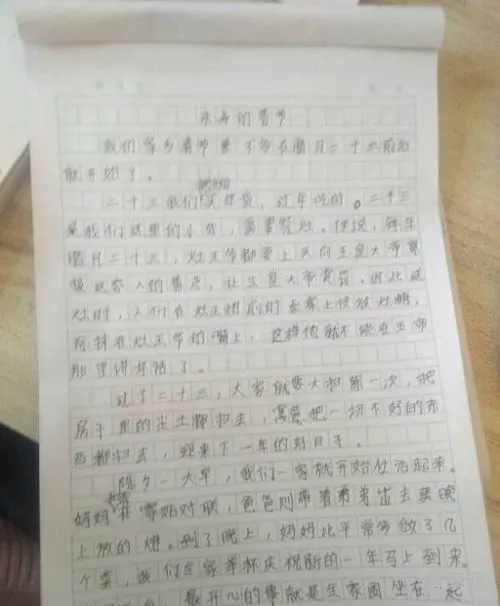 的春节
我们家乡春节差不多在腊月二十三前后
就开始了。
二十三我们就开始买年货,过年吃的。二十三
是我们这里的小年,需要祭灶。传说,每年
腊月二十三,灶王爷都要上天向玉皇大帝
报这家人的善恶,让玉皇大帝赏罚。因此送
灶时,人们在灶王像前的桌案上供放灶糖,
抹在灶王爷的嘴上,这样他就不能在玉帝
那里讲坏话了。
过了二十三,大家就要大扫除一次,把
房子里的尘土都扫去,寓意把一切不好的东
西都扫去,迎来下一年的好日子。
除夕一大早,我们一家就开始忙活起来。
妈妈在家贴对联,爸爸则带着弟弟出去买晚
上放的炮。到了晚上,妈妈比平常多做了几
个菜,我们全家举杯庆祝新的一年马上到来。
最开心的事就是全家围坐在一起